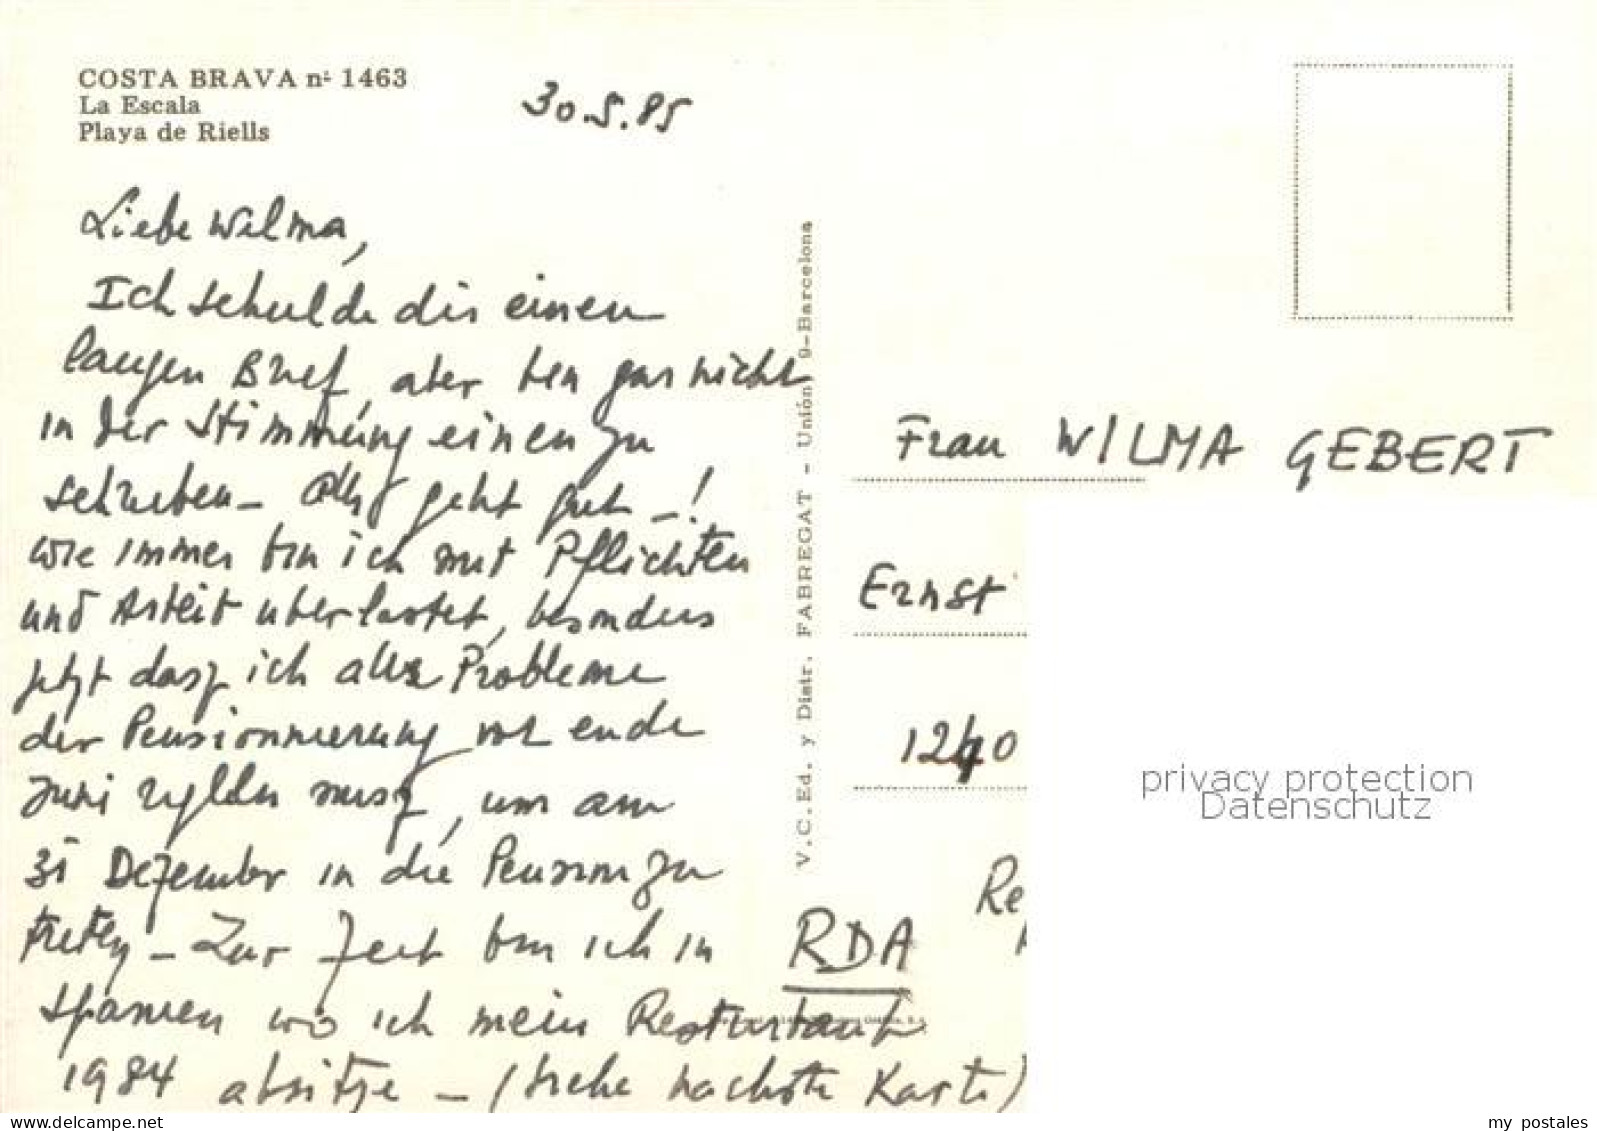 COSTA BRAVA nº 1463
La Escala
Playa de Riells
30.5.85
Liebe Wilma,
Ich schulde dir einen
langen Brief, aber bin gar nicht
in der Stimmung einen zu
schreiben – Alles geht gut –!
wie immer bin ich mit Pflichten
und Arbeit überlastet, besonders
jetzt dasz ich alle Probleme
der Pensionnierung vor ende
Juni reglen musz, um am
31 Dezember in die Pension zu
treten – Zur Zeit bin ich in
Spanien wo ich mein
1984 absitze – (siehe nachste Karte)
V.C. Ed. y Distr. FABREGAT - Unión, 9-Barcelona
Frau WILMA GEBERT
Ernst
1240
Re
RDA
privacy protection
Datenschutz
my postales
www.delcampe.net